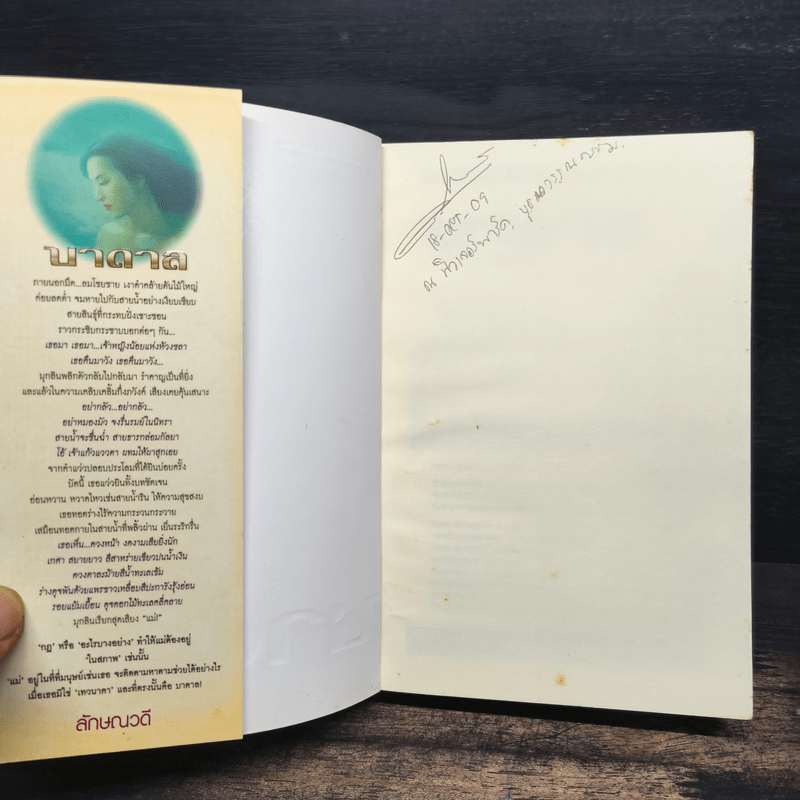 บาดาล
ภายนอกมืด...ลมโชยชาย เงาดำคล้ายต้นไม้ใหญ่
ค่อยลดต่ำ จมหายไปกับสายน้ำอย่างเงียบเชียบ
สายสินธุ์ที่กระทบฝั่งเซาะซอน
ราวกระซิบกระซาบบอกต่อๆ กัน...
เธอมา เธอมา...เจ้าหญิงน้อยแห่งห้วงชลา
เธอคืนมาวัง เธอคืนมาวัง...
มุกสินพลิกตัวกลับไปกลับมา รำคาญเป็นที่ยิ่ง
และแล้วในความเคลิบเคลิ้มกึ่งภวังค์ เสียงเคยคุ้นเสนาะ
อย่ากลัว...อย่ากลัว...
อย่าหมองมัว จงรื่นรมย์ในนิทรา
สายน้ำจะชื่นฉ่ำ สายธารกล่อมกัลยา
โอ้ เจ้าแก้วแววตา ผทมให้ผาสุกเอย
จากคำแว่วปลอบประโลมที่ได้ยินบ่อยครั้ง
บัดนี้ เธอแว่วยินทั้งบทชัดเจน
อ่อนหวาน หวาดไหวเช่นสายน้ำริน ให้ความสุขสงบ
เธอทอดร่างไร้ความกระวนกระวาย
เสมือนทอดกายในสายน้ำที่พลิ้วผ่าน เย็นระริกรื่น
เธอเห็น...ดวงหน้า งดงามเสียยิ่งนัก
เกศา สยายยาว สีสาหร่ายเขียวปนน้ำเงิน
ดวงตาละม้ายสีน้ำทะเลเข้ม
ร่างดุจพันด้วยแพรขาวเหลื่อบสีปะการังรุ้งอ่อน
รอยแย้มเยื้อน ดุจดอกไม้ทะเลคลี่คลาย
มุกสินเรียกสุดเสียง "แม่!"
'กฎ' หรือ 'อะไรบางอย่าง' ทำให้แม่ต้องอยู่
'ในสภาพ' เช่นนั้น
'แม่' อยู่ในที่ที่มนุษย์เช่นเธอ จะติดตามหาตามช่วยได้อย่างไร
เมื่อเธอมิใช่ 'เทวนาคา' และที่ตรงนั้นคือ บาดาล!
ลักษณวดี
18-ตค-09
ณ ฟิวเจอร์พาร์ค